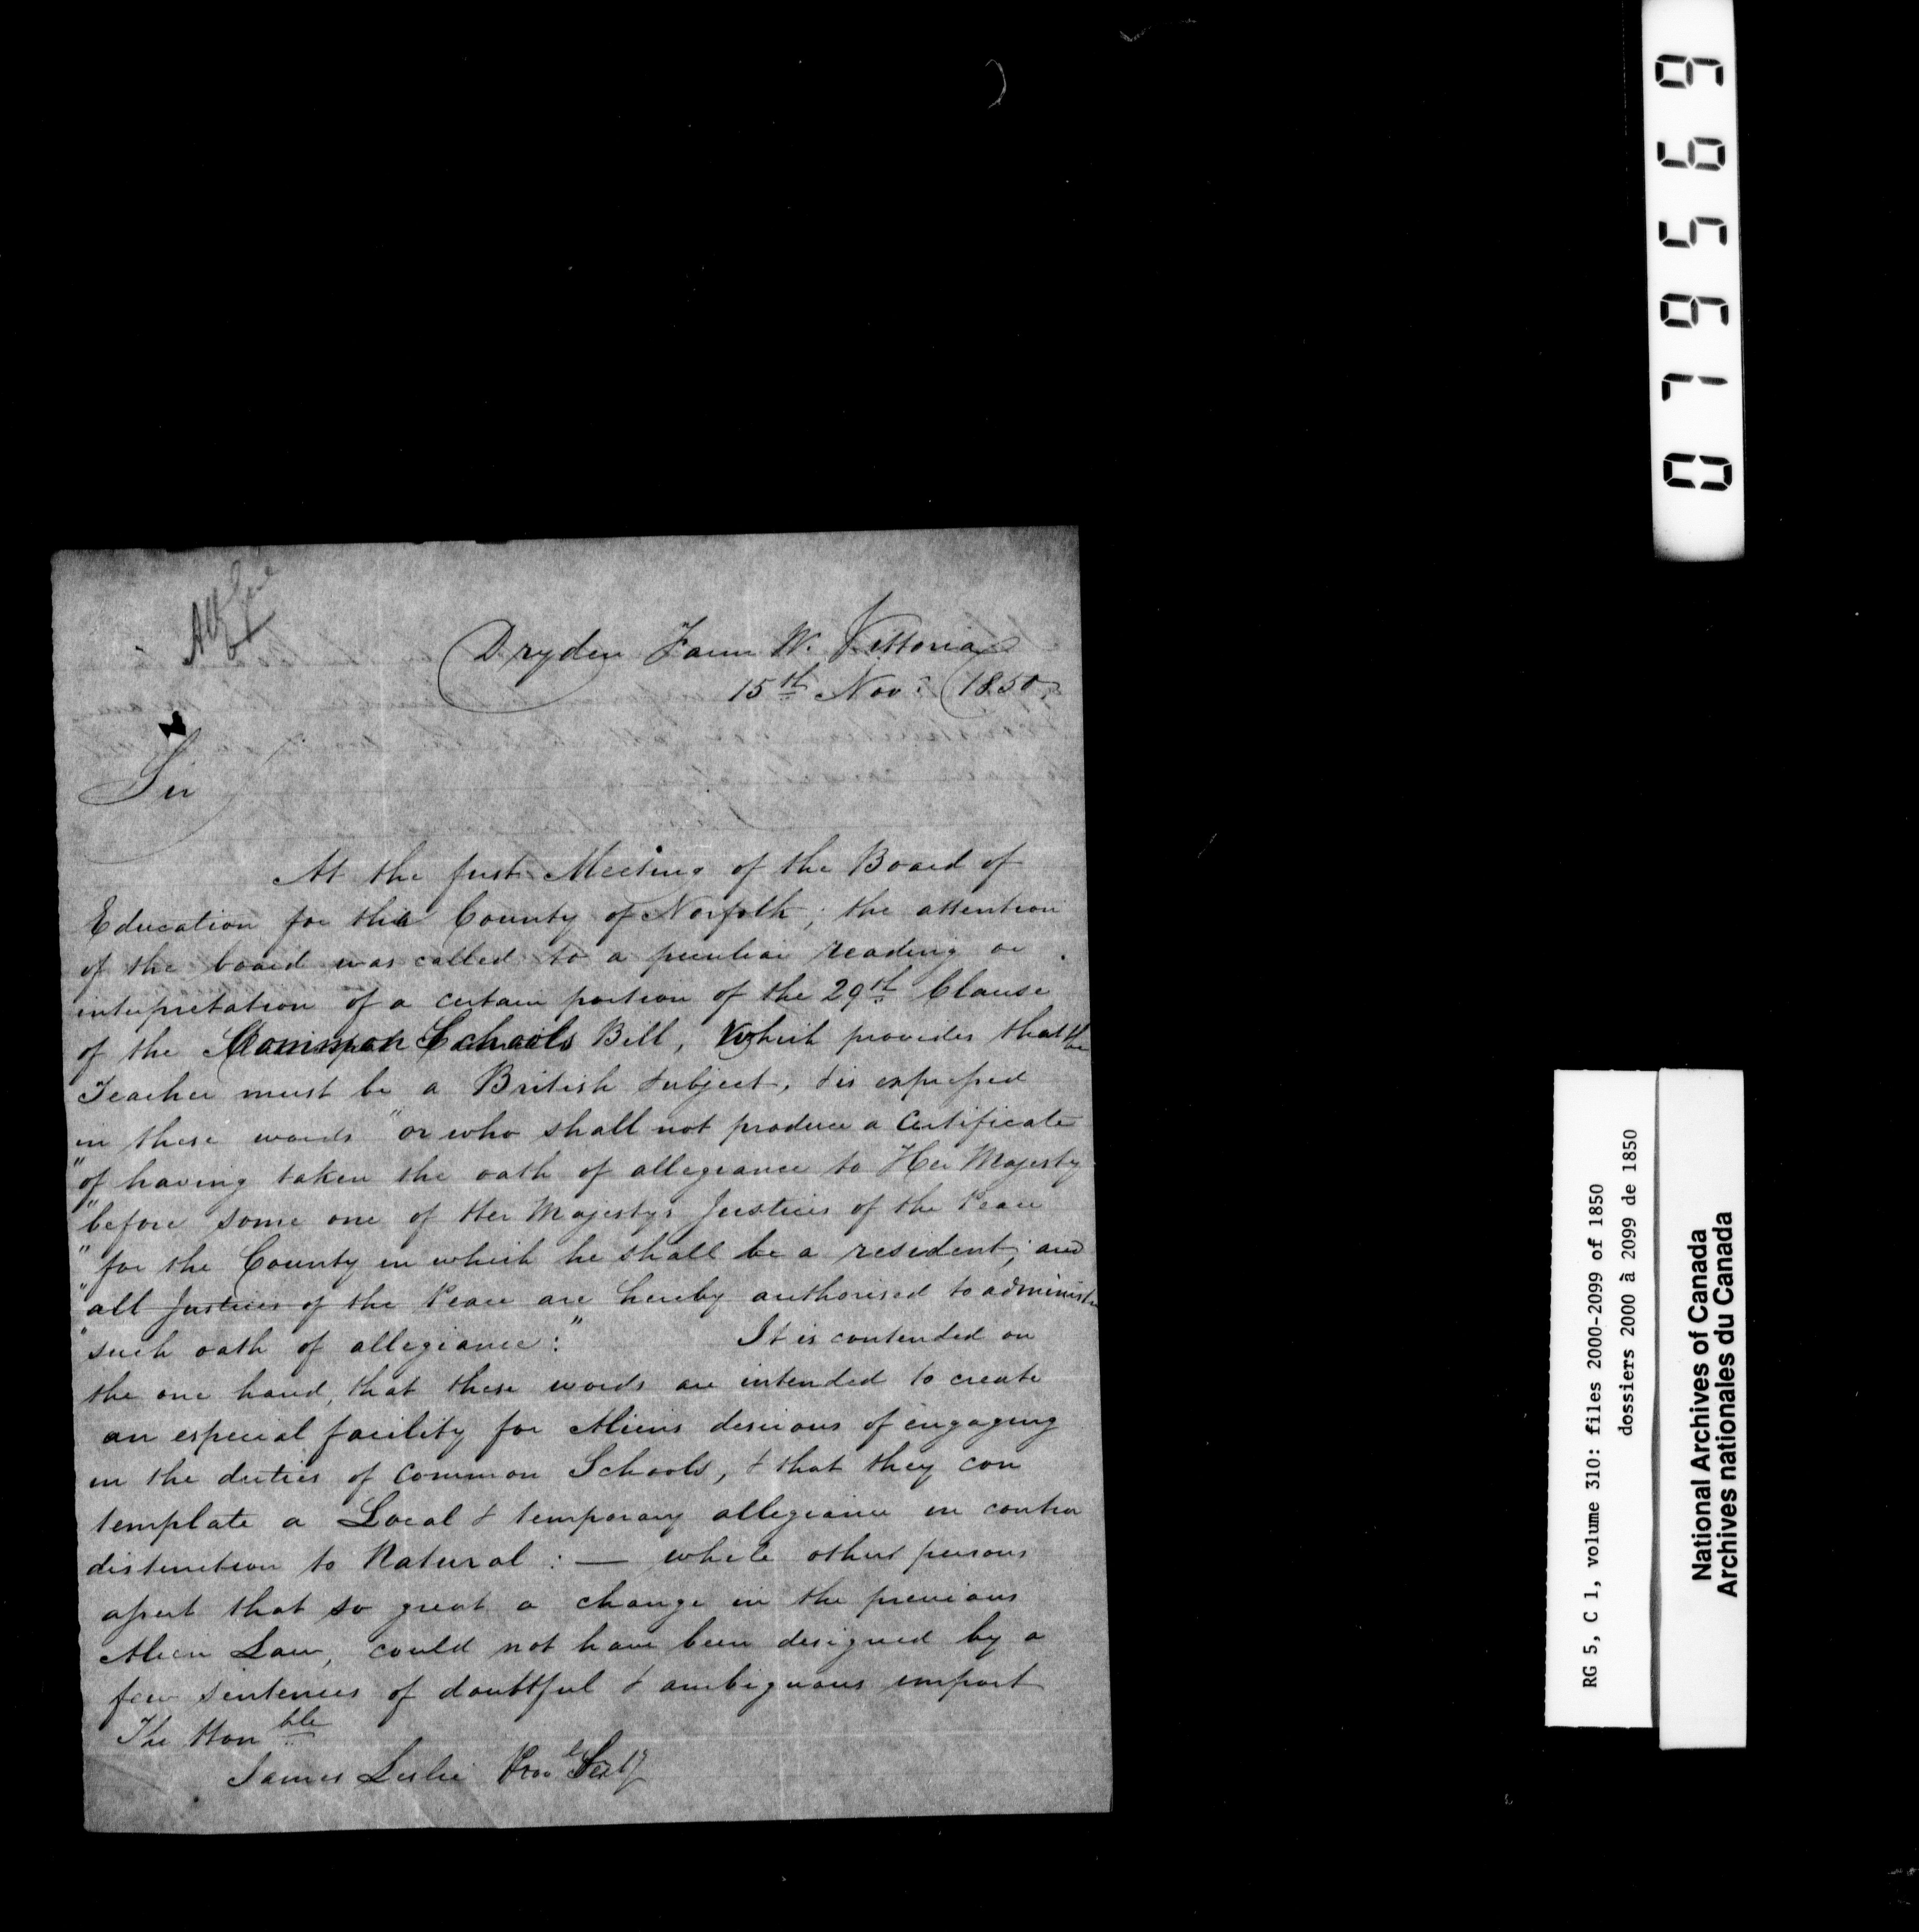 Dryden Farm W. Vittoria
15th Nov. 1850.
Sir
At the first Meeting of the Board of
Education for the County of Norfolk; the attention
of the board was called to a peculiar reading or
interpretation of a certain portion of the 29th Clause
of the Common Schools Bill, Which provides that the
Teacher must be a British subject, & is expressed
in these words "or who shall not produce a Certificate
"of having taken the oath of allegiance to Her Majesty
"before some one of Her Majestys Justices of the Peace
"for the County in which he shall be a resident; and
"all Justices of the Peace are hereby authorised to administer
"such oath of allegiance:" It is contended on
the one hand, that these words are intended to create
an especial facility for Aliens desirous of engaging
in the duties of Common Schools, & that they con
template a Local & temporary allegiance in contra
distinction to Natural : — while other persons
assert that so great a change in the previous
Alien Law, could not have been designed by a
few sentences of doubtful & ambiguous import
The Honble
James Leslie Provl Secty
079569
RG 5, C 1, volume 310: files 2000-2099 of 1850
dossiers 2000 à 2099 de 1850
National Archives of Canada
Archives nationales du Canada